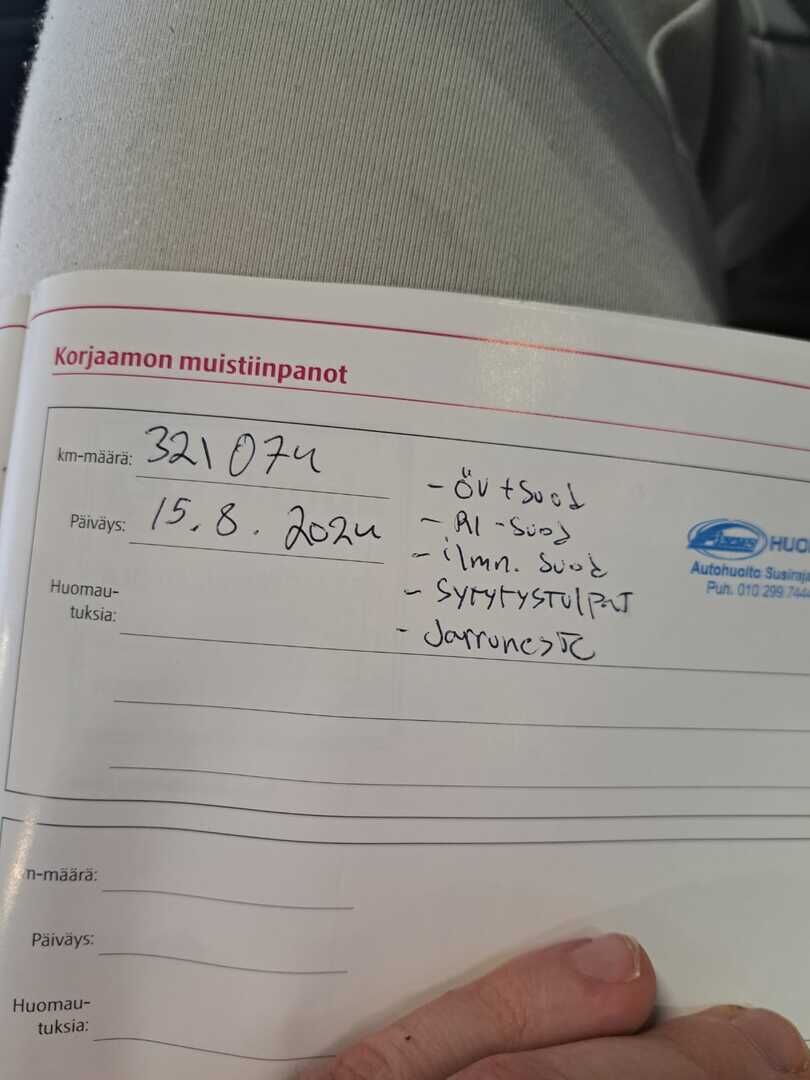 Korjaamon muistiinpanot
km-määrä: 321 074
Päiväys: 15.8.2024
Huomau-
tuksia:
- ÖV + Suod
- RI - Suod
- ilmn. Suod
- Sytytystulpat
- Jarruneste
HUO
Autohuolto Susiraja
Puh. 010 299 7444
n-määrä:
Päiväys:
Huomau-
tuksia: